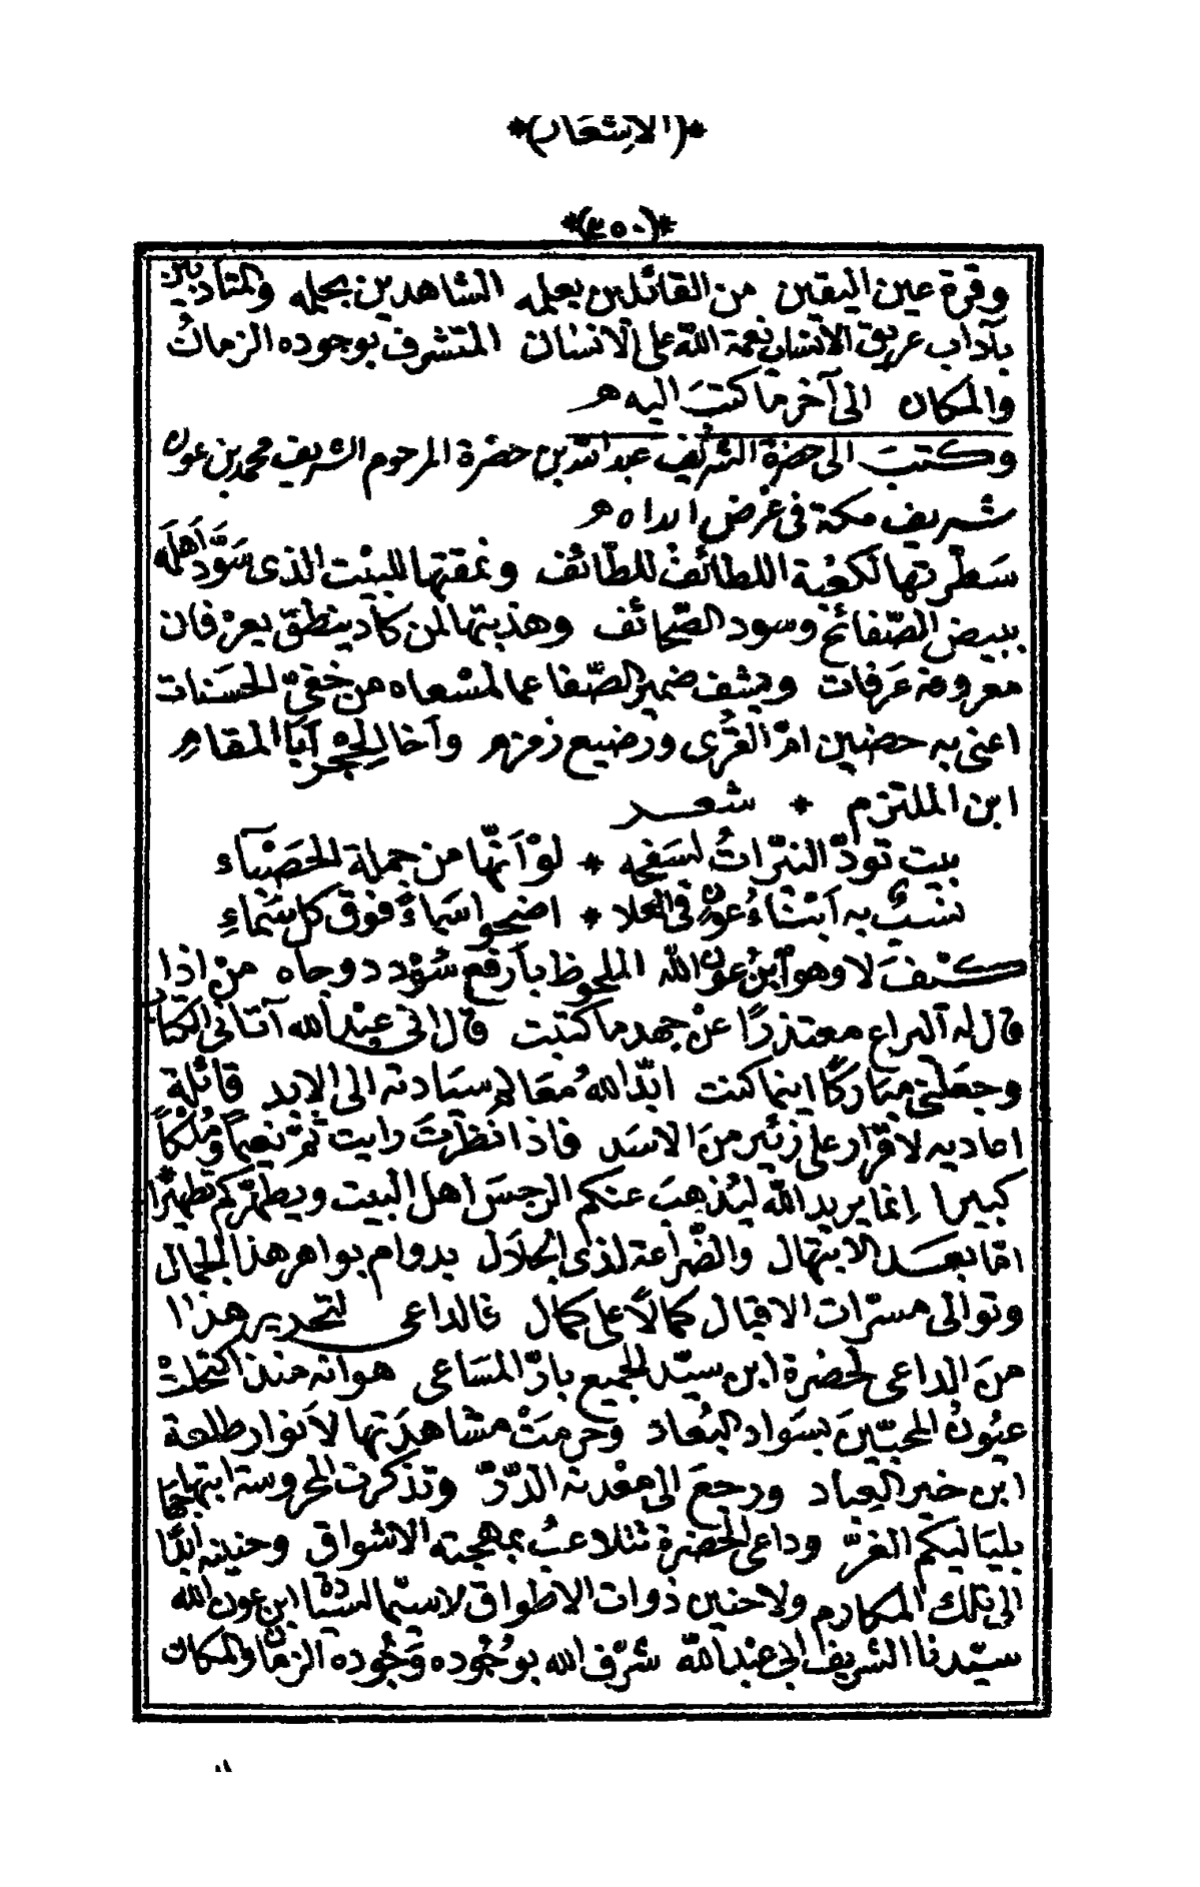 *(الاشعار)*
*(٣٥٠)*
وقرة عين اليقين من القائلين بعلمه الشاهدين بحلمه والمتأدبين
بآداب عريق الانتساب نعمة الله على الانسان المتشرف بوجوده الزمانُ
والمكان الى آخر ما كتبَ اليه هـ
وكتبَ الى حضرة الشريف عبد الله بن حضرة المرحوم الشريف محمد بن عون
شريف مكة فى غرض ابداه هـ
سَطّرتها لكعْبة اللطائف للطّائف ونمقتها للبيْت الذى سَوَّد أهلَه
ببيض الصّفائح وسود الصّحائف وهذبتها لمن كاد ينطقّ بعرْفان
معروفه عَرفات ويشف ضمير الصّفا عما لمسْعاه من خفىّ الحسَنات
اعنى به حضنين امّ القُرى ورضيع زمزم وأخا الحِجر آيَا المقام
ابن الملتزم * شعر
بيت تودّ النيّراتُ لسَفحه * لوْ اَنّها من جملة الحَصْبَاء
نسَبٌ به اَبْنَاءُ عوْنٍ فى العلا * اضحوا سَماءً فوْق كل سَماءِ
كنْفَ لا وهو اَبنُ عون الله الملحوظ بأرفع سُؤدد وجاه منْ اذا
قال له اليراع معتذرًا عنْ جهد ما كتبت قال انى عبْد الله آتانى الكتاب
وجعَلنى مبَاركًا اينما كنت ابدّ الله مُعَالم سيَادته الى الابد قائلة
اعاديه لا قرار على زئير منَ الاسَد فاذا نظرتَ رايت ثمّ نعيماً ومُلْكاً
كبيرا اِنما يريد الله ليُذهبَ عنكم الرجسَ اهل البيت ويطهّركم تطهيرًا*
امّا بعد الابتهال والضّراعة لذى الجلاَل بدوام بواهر هذا الجمال
وتوالى مسرّات الاقبال كمالاً على كمال فالداعى لتحرير هذا
منَ الداعى لحضْرة ابن سيّد الجميع بارّ المسَاعى هو انه منذ اكتحلتْ
عيُونُ المحبّينَ بسَواد البُعاد وحُرمَتْ مشاهدَتها لاَنوار طلعة
ابن خير العِباد ورجعَ الى معْدنه الدّرّ وتذكرت المحروسة ابتهاجها
بليَاليكم الغرّ وداعى الحَضرة تتلاعبُ بمهجته الاشواق وحنينه ابدًا
الى تلك المكارم ولا حنين ذوات الاطواق لاسيّما لسيّادة ابن عون الله
سيّدنا الشريف ابى عبْد الله شرّف الله بوجُوده وجُوده الزمان والمكان